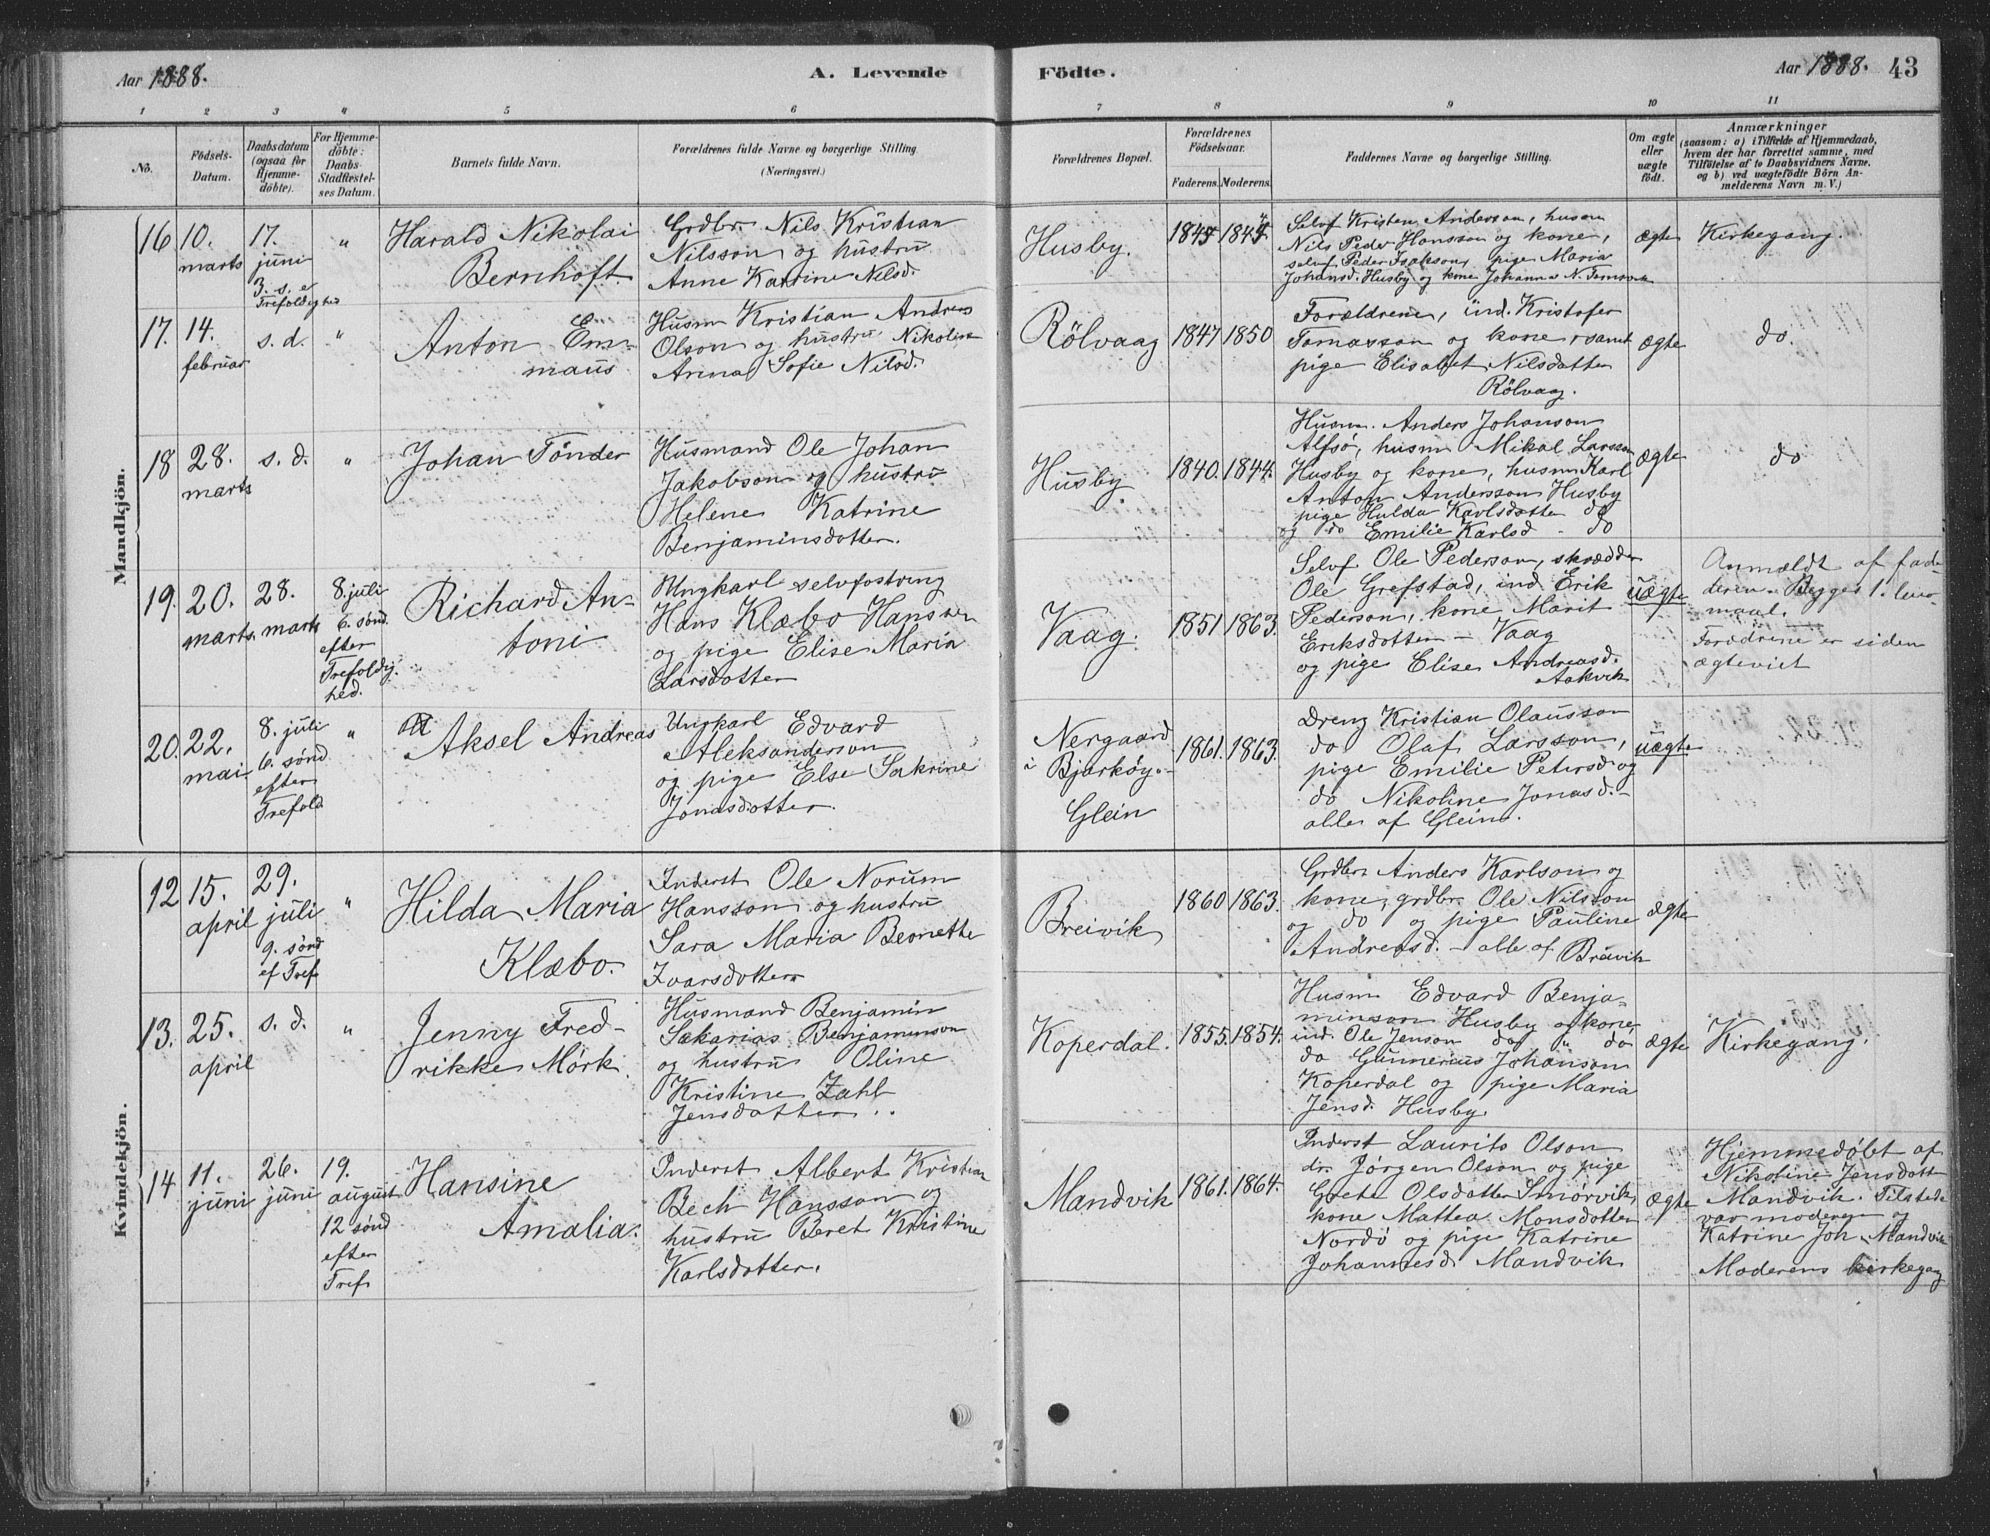 Aar 1888.
A. Levende
Födte.
Aar 1888. 43
1 2 3 4 5 6 7 8 9 10 11
No.
Födsels-
Datum.
Daabsdatum
(ogsaa for
Hjemme-
döbte).
For Hjemme-
döbte:
Daabs-
Stadfæstel-
ses Datum.
Barnets fulde Navn.
Forældrenes fulde Navne og borgerlige Stilling.
(Næringsvei.)
Forældrenes Bopæl.
Forældrenes
Födselsaar.
Faderens. Moderens.
Faddernes Navne og borgerlige Stilling.
Om ægte
eller
uægte
födt.
Anmærkninger
(saasom: a) i Tilfælde af Hjemmedaab,
hvem der har forrettet samme, med
Tilföielse af to Daabsvidners Navne,
og b) ved uægtefödte Börn An-
melderens Navn m. V.)
Mandkjön.
16
10.
marts
17.
juni
3. s. e
Trefoldighed
"
Harald Nikolai
Bernhoft.
Grdbr. Nils Kristian
Nilsson og hustru
Anne Katrine Nilsd.
Husby.
1845 1844
Selvf Kristen Anderson, husm
Nils Peder Hansson og kone,
selvf. Peder Isakson, pige Maria
Johansd. Husby og kone Johanna N.
ægte
Kirkegang.
17.
14.
februar
s. d.
"
Anton Em-
maus
Husm Kristian Andreas
Olson og hustru Nikoline
Anna Sofie Nilsd.
Rölvaag
1847 1850
Forældrene, ind. Kristofer
Tomasson og kone, samt
pige Elisabet Nilsdatter
Rölvaag.
ægte
do.
18
28.
marts
s. d.
"
Johan Tönder
Husmand Ole Johan
Jakobson og hustru
Helene Katrine
Benjaminsdotter.
Husby.
1840. 1844.
Husm. Anders Johanson
Alfsö, husm Mikal Larsson
Husby og kone, husm Karl
Anton Andersson Husby
pige Hulda Karlsdotter do
og do Emilie Karlsd - do
ægte
do
19.
20.
marts.
28.
marts
8. juli
6. sönd.
efter
Trefoldig-
hed.
Richard An-
toni
Ungkarl selvfostring
Hans Klæbo Hanssen
og pige Elise Maria
Larsdotter
Vaag.
1851 1863.
Selvf Ole Pederson, skrædder
Ole Grefstad, ind. Erik
Pederson, kone Marit
Eriksdotter - Vaag
og pige Elise Andreasd.
Aakvik
uægte
Anmældt af fad-
deren. Begges 1. leier-
maal.
Forældrene er siden
ægteviet
20.
22.
mai
8. juli
6. sönd
efter
Trefold
"
Aksel Andreas
Ungkarl Edvard
Aleksanderson
og pige Else Sakrine
Jonasdotter.
Nergaard
i Bjarköy. -
Glein
1861. 1863.
Dreng Kristian Olausson
do Olaf Larsson,
pige Emilie Petersd og
do Nikoline Jonasd. -
alle af Glein.
uægte
Kvindekjön.
12
15.
april
29.
juli
9. sönd
ef Tref
"
Hilda Maria
Klæbo.
Inderst Ole Norum
Hansson og hustru
Sara Maria Bernette
Ivarsdotter
Breivik
1860 1863.
Grdbr Anders Karlson og
kone, grdbr. Ole Nilsson
og do og pige Pauline
Andreasd. - alle af Breivik
ægte
13.
25.
april
s. d.
"
Jenny Fred-
rikke Mörk.
Husmand Benjamin
Sakarias Benjaminson
og hustru Oline
Kristine Zahl
Jensdotter.
Koperdal.
1855. 1854.
Husm Edvard Benja-
minson Husby og kone,
ind. Ole Jenson do " do
do Gunnerius Johanson
Koperdal og pige Maria
Jensd. Husby.
ægte
Kirkegang.
14
11.
juni
26.
juni
19.
august
12 sönd
efter
Tref
Hansine
Amalia.
Inderst Albert Kristian
Bech Hansson og
hustru Beret Kristine
Karlsdotter.
Mandvik
1861. 1864.
Inderst Laurits Olson
dr. Jörgen Olson og pige
Grete Olsdotter Smörvik,
kone Mattea Monsdotter
Nordö og pige Katrine
Johannesd. Mandvik
ægte
Hjemmedöbt af
Nikoline Jensdott
Mandvik. Tilstede
var moderen og
Katrine Joh. Mandvik
Moderens kirkegang